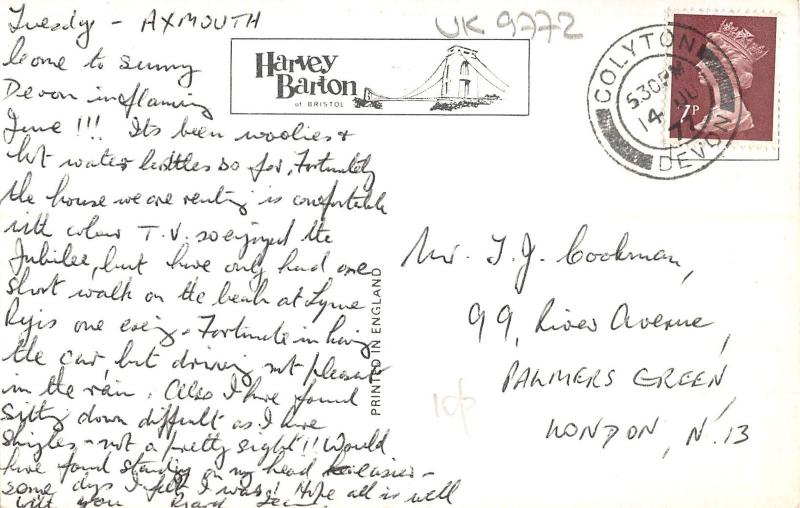 Tuesday - AXMOUTH
Come to sunny
Devon in flaming
June!!! Its been woolies &
hot water bottles so far, Fortunately
the house we are renting is comfortable
with colour T.V. so enjoyed the
Jubilee, but have only had one
short walk on the beach at Lyme
Regis one evening. Fortunate in having
the car, but driving not pleasant
in the rain. Also I have found
sitting down difficult as I have
shingles - not a pretty sight!! Would
have found standing on my head easier -
some days I felt I was! Hope all is well
with you
UK 9772
Harvey
Barton
of BRISTOL
PRINTED IN ENGLAND
COLYTON
530PM
14 JU
77
DEVON
7P
Mr. T. J. Cookman,
99, River Avenue,
PALMERS GREEN,
LONDON, N.13
10p